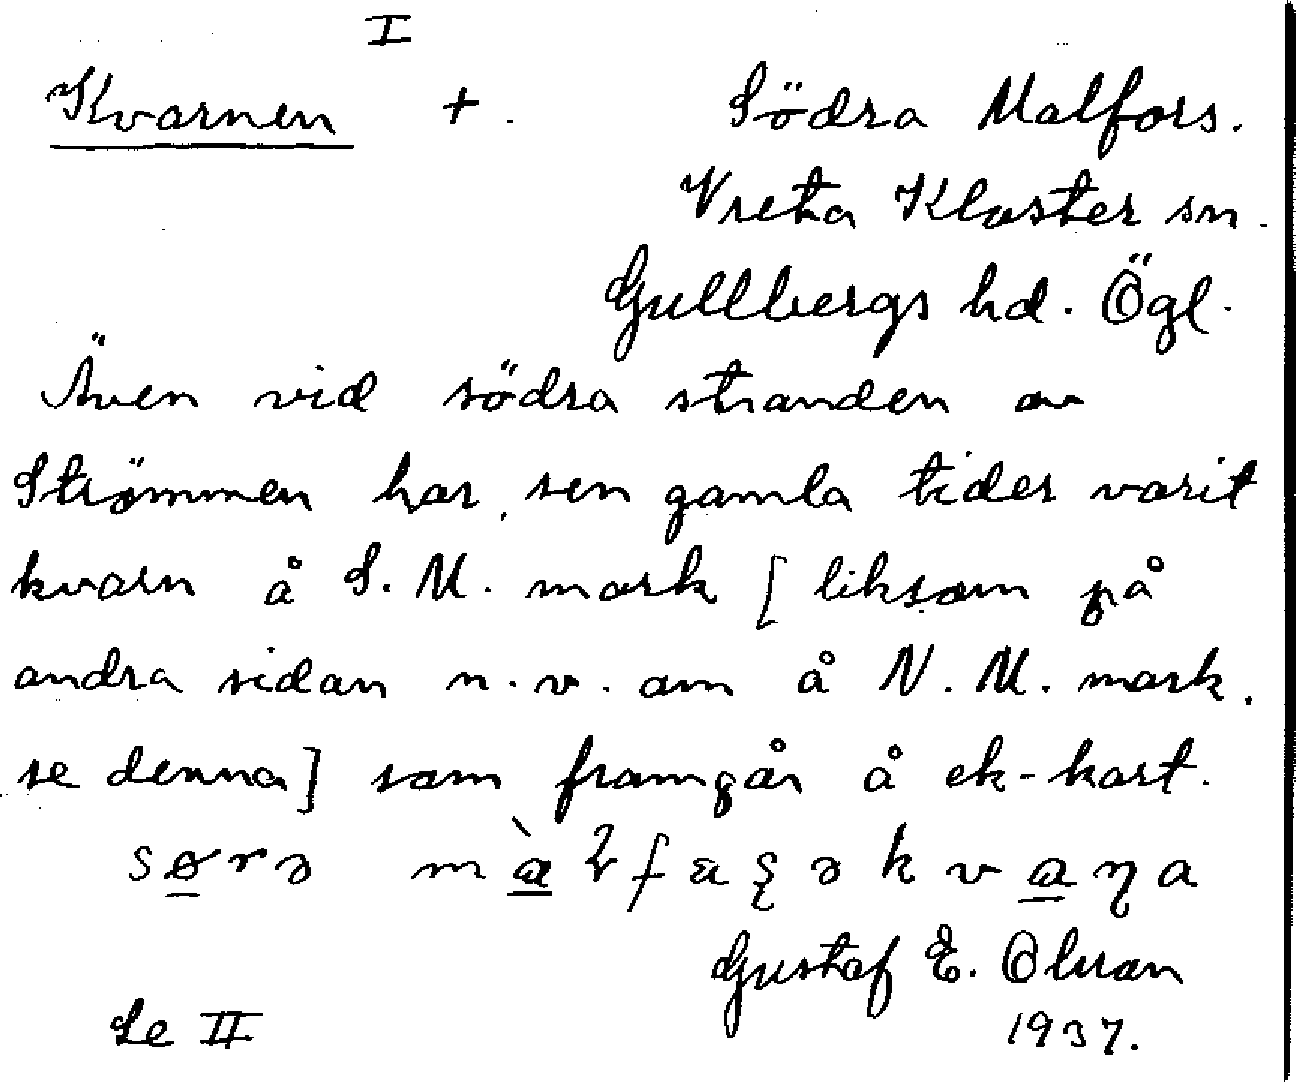 I
Kvarnen + Södra Malfors.
Vreta Kloster sn.
Gullbergs hd. Ögl.
Även vid södra stranden av
Strömmen har sen gamla tider varit
kvarn å S. M. mark [liksom på
andra sidan n.v. om å N. M. mark.
se denna] som framgår å ek-kart.
Gustaf E. Olsson
Se II 1937.